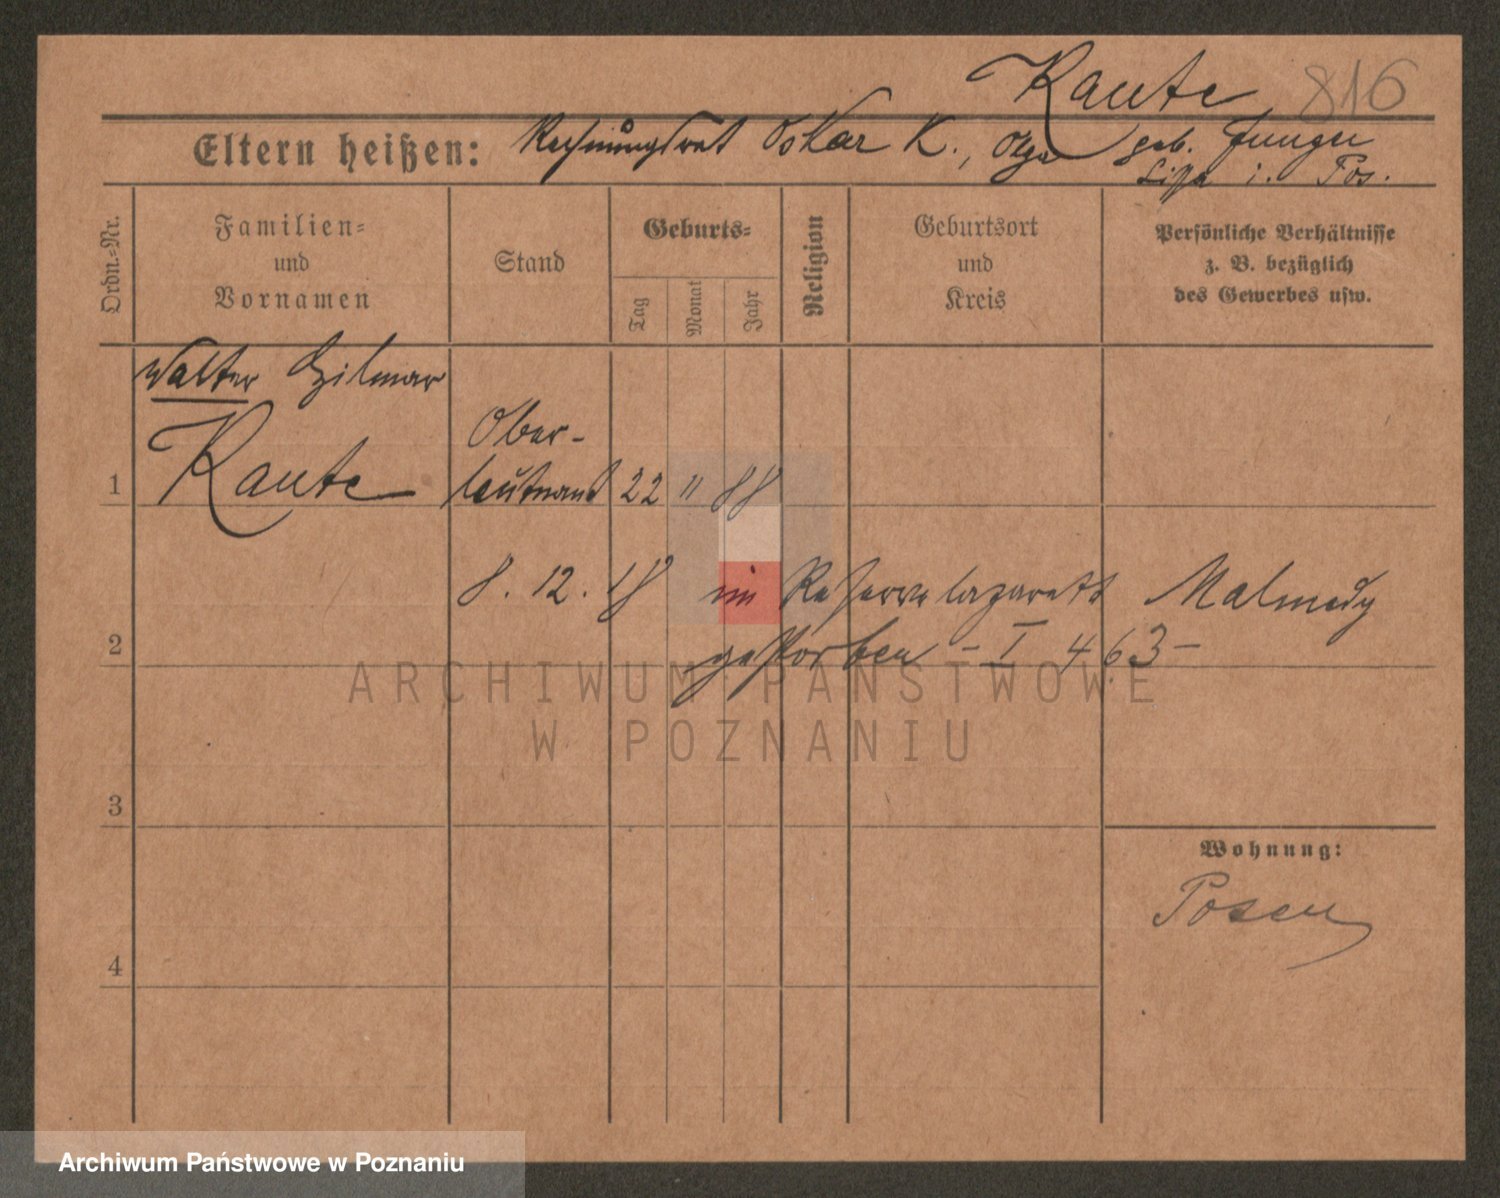 Kaute
816
Eltern heißen: Rechnungsrat Oskar K., Olga geb.
Lissa i. Pos.
Ordn.-Nr.
Familien-
und
Vornamen
Stand
Geburts-
Tag
Monat
Jahr
Religion
Geburtsort
und
Kreis
Persönliche Verhältnisse
z. B. bezüglich
des Gewerbes usw.
Walter Hilmar
Kaute
Ober-
leutnant 22 11 88
1
8. 12. 18 im Reservelazarett Malmedy
gestorben - I 463 -
2
3
4
Wohnung:
Posen
ARCHIWUM PAŃSTWOWE
W POZNANIU
Archiwum Państwowe w Poznaniu